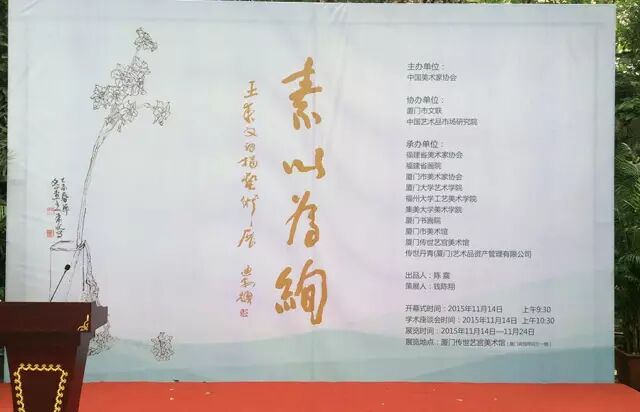 素以为绚
王来文白描艺术展
主办单位：
中国美术家协会
协办单位：
厦门市文联
中国艺术品市场研究院
承办单位：
福建省美术家协会
福建省画院
厦门市美术家协会
厦门大学艺术学院
福州大学工艺美术学院
集美大学美术学院
厦门书画院
厦门市美术馆
厦门传世艺宫美术馆
传世丹青(厦门)艺术品资产管理有限公司
出品人：陈 震
策展人：钱陈翔
开幕式时间：2015年11月14日 上午9:30
学术座谈会时间：2015年11月14日 上午10:30
展览时间：2015年11月14日—11月24日
展览地点：厦门传世艺宫美术馆